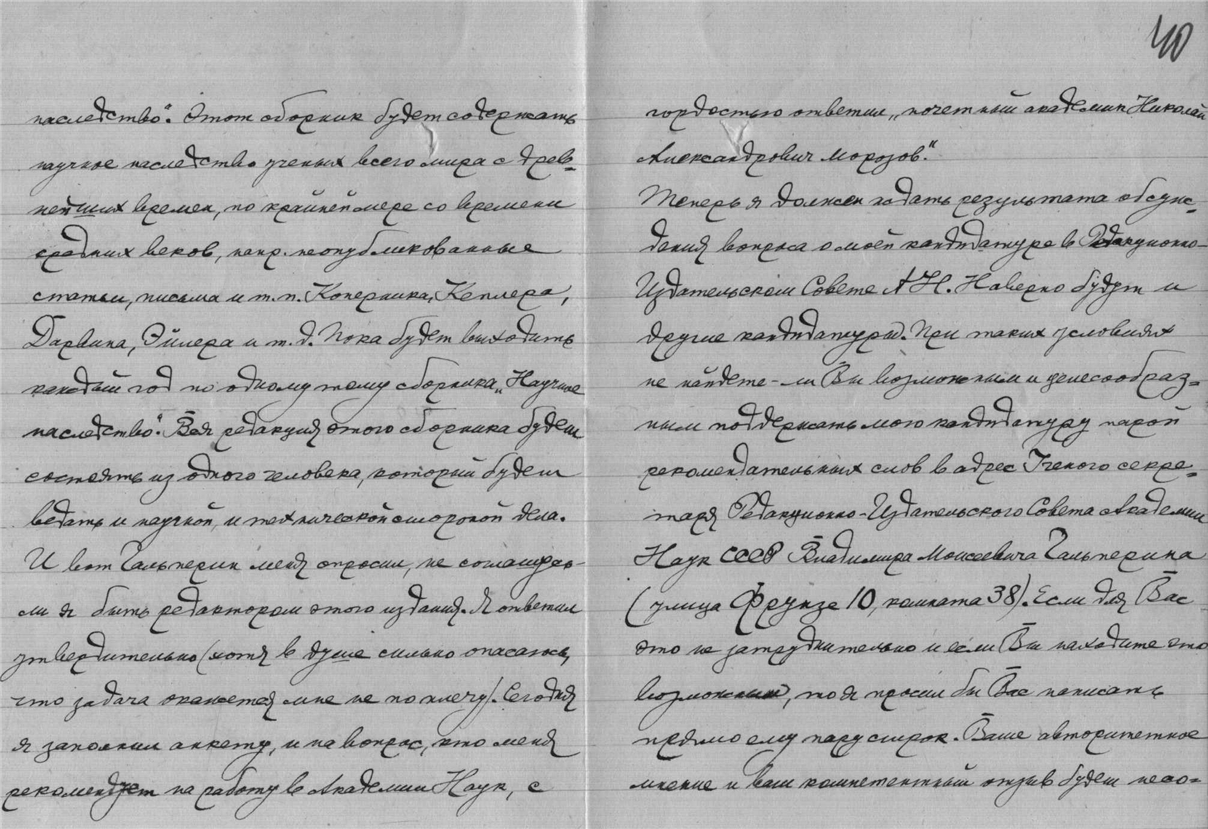 40
наследство". Этот сборник будет содержать
научное наследство ученых всего мира с древ-
нейших времен, по крайней мере со времени
средних веков, напр. неопубликованные
статьи, письма и т.п. Коперника, Кеплера,
Дарвина, Эйлера и т.д. Пока будет выходить
каждый год по одному тому сборника „Научное
наследство". Вся редакция этого сборника будет
состоять из одного человека, который будет
ведать и научной, и технической стороной дела.
И вот Гальперин меня спросил, не соглашусь-
ли я быть редактором этого издания. Я ответил
утвердительно (хотя в душе сильно опасаюсь,
что задача окажется мне не по плечу). Сегодня
я заполнил анкету, и на вопрос, кто меня
рекомендует на работу в Академии Наук, с
гордостью ответил „почетный академик Николай
Александрович Морозов."
Теперь я должен ждать результата обсуж-
дения вопроса о моей кандидатуре в Редакционно-
Издательском Совете АН. Наверно будут и
другие кандидатуры. При таких условиях
не найдете-ли Вы возможным и целесообраз-
ным поддержать мою кандидатуру парой
рекомендательных слов в адрес Ученого секре-
таря Редакционно-Издательского Совета Академии
Наук СССР Владимира Моисеевича Гальперина
(улица Фрунзе 10, комната 38). Если для Вас
это не затруднительно и если Вы находите это
возможным, то я просил бы Вас написать
прямо ему пару строк. Ваше авторитетное
мнение и ваш компетентный отзыв будет несо-